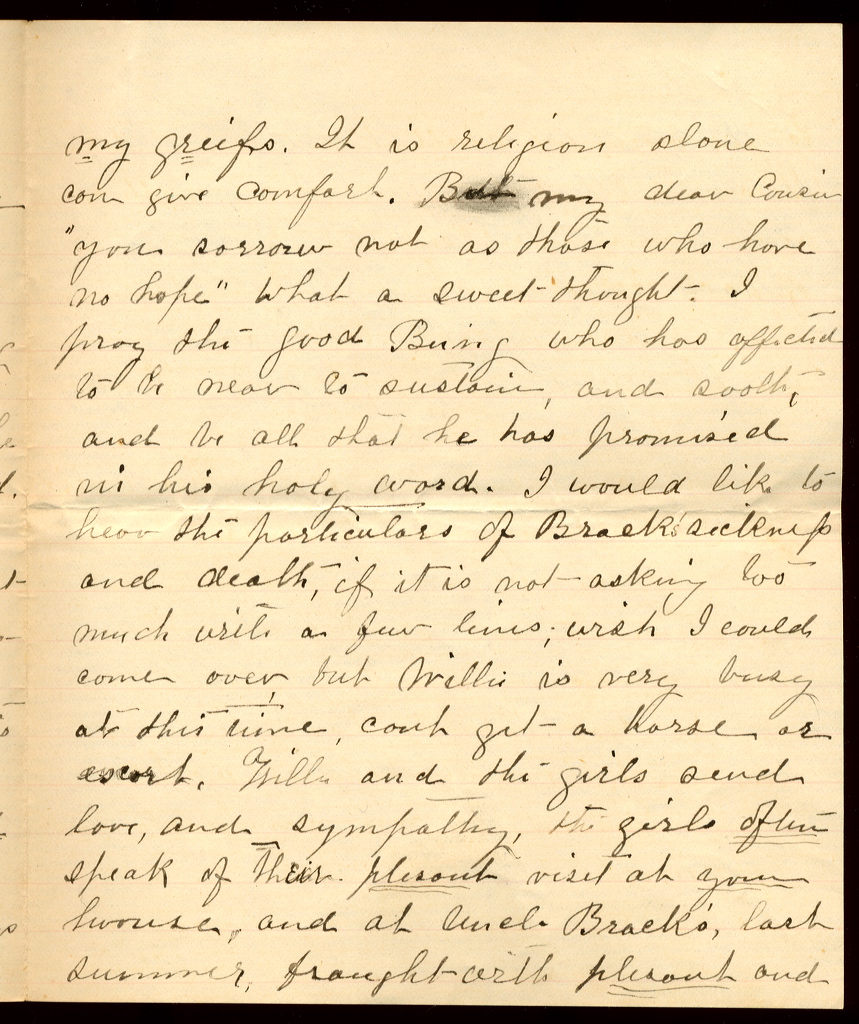 my greifs. It is religion alone
can give comfort. But my dear Cousin
"you sorrow not as those who have
no hope" what a sweet thought. I
pray the good Being who has afflicted
to be near to sustain, and sooth,
and be all that he has promised
in his holy word. I would like to
hear the particulars of Brack's sickness
and death, if it is not asking too
much write a few lines, wish I could
come over, but Willie is very busy
at this time, cant get a horse or
escort. Willie and the girls send
love, and sympathy, the girls often
speak of their plesant visit at your
house, and at Uncle Brack's, last
summer, fraught with plesant and